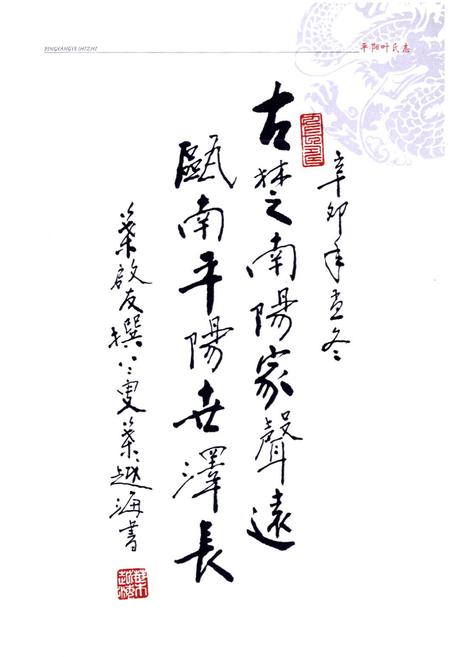 PINGYANGYESHIZHI
平阳叶氏志
辛卯年孟冬
古楚南陽家聲遠
甌南平陽世澤長
葉啟友撰 葉越海書
葉越海